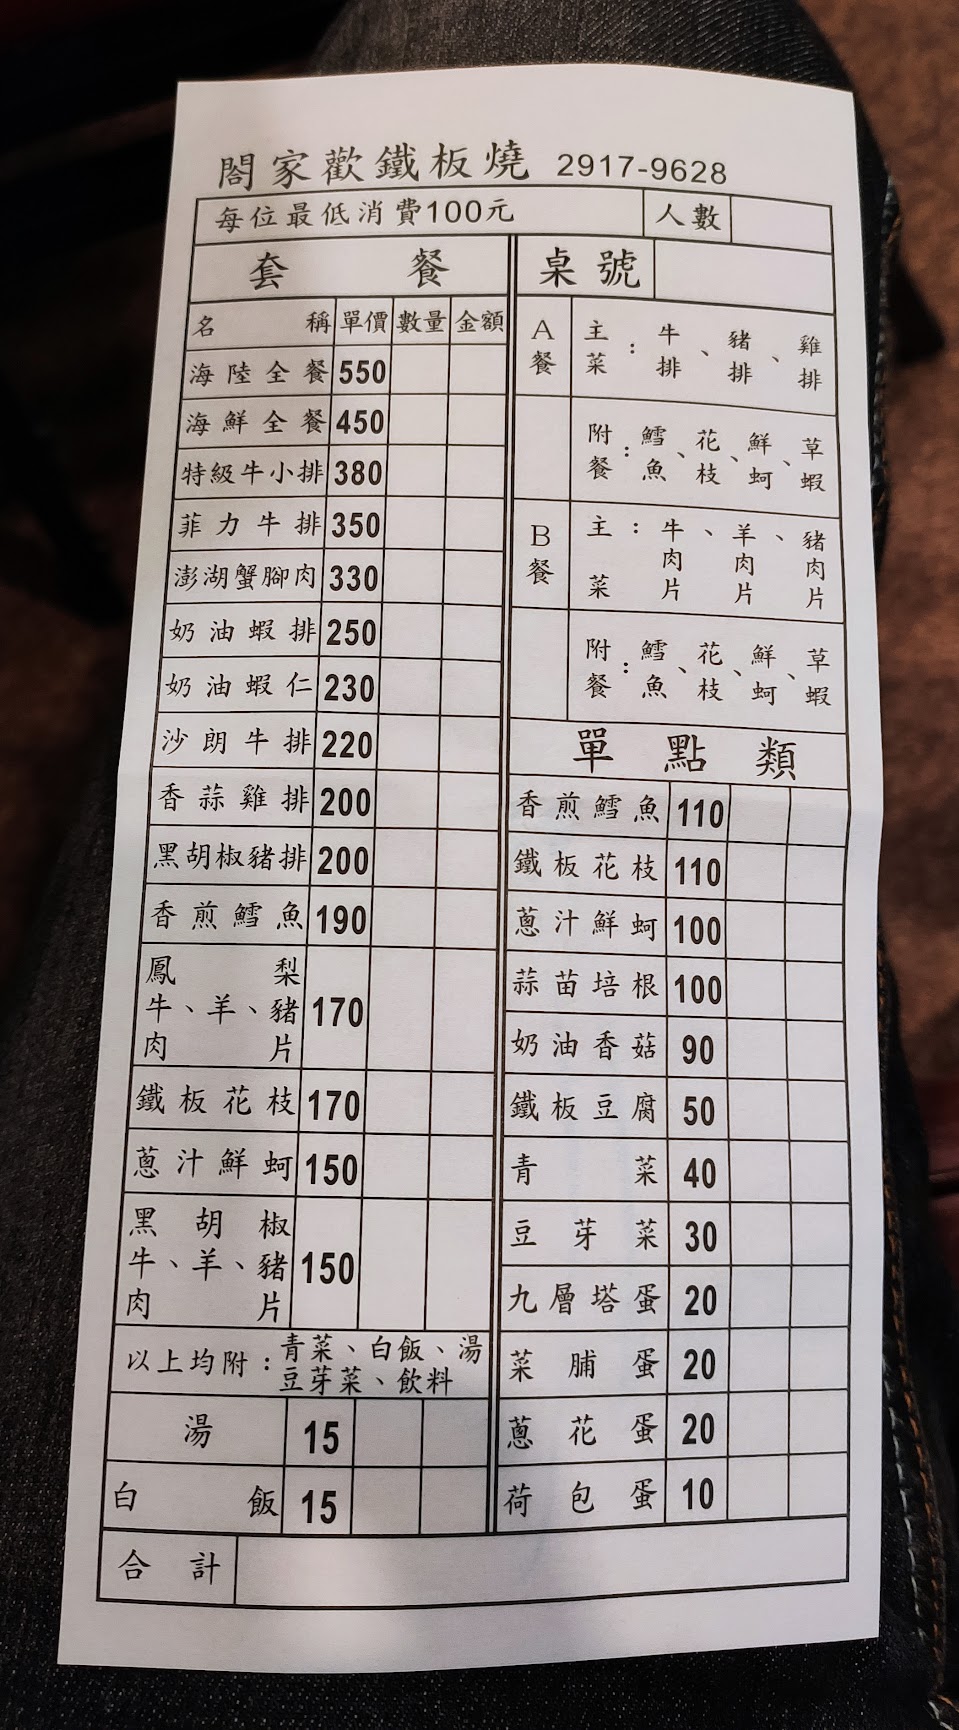 閤家歡鐵板燒 2917-9628
每位最低消費100元 人數
套餐
名稱 單價 數量 金額
海陸全餐 550
海鮮全餐 450
特級牛小排 380
菲力牛排 350
澎湖蟹腳肉 330
奶油蝦排 250
奶油蝦仁 230
沙朗牛排 220
香蒜雞排 200
黑胡椒豬排 200
香煎鱈魚 190
鳳梨
牛、羊、豬
肉片
170
鐵板花枝 170
蔥汁鮮蚵 150
黑胡椒
牛、羊、豬
肉片
150
以上均附：青菜、白飯、湯
豆芽菜、飲料
湯 15
白飯 15
桌號
A餐 主菜：牛排、豬排、雞排
附餐：鱈魚、花枝、鮮蚵、草蝦
B餐 主菜：牛肉片、羊肉片、豬肉片
附餐：鱈魚、花枝、鮮蚵、草蝦
單點類
香煎鱈魚 110
鐵板花枝 110
蔥汁鮮蚵 100
蒜苗培根 100
奶油香菇 90
鐵板豆腐 50
青菜 40
豆芽菜 30
九層塔蛋 20
菜脯蛋 20
蔥花蛋 20
荷包蛋 10
合計